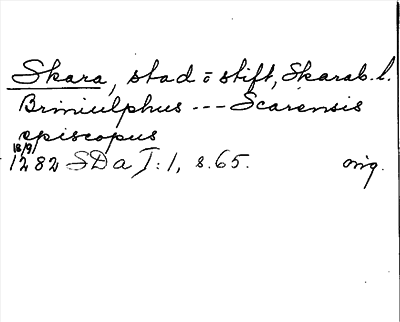 Skara, stad o stift, Skarab. l.
Briniulphus --- Scarensis
episcopus
18/9
1282 SD a I:1, s. 65. orig.